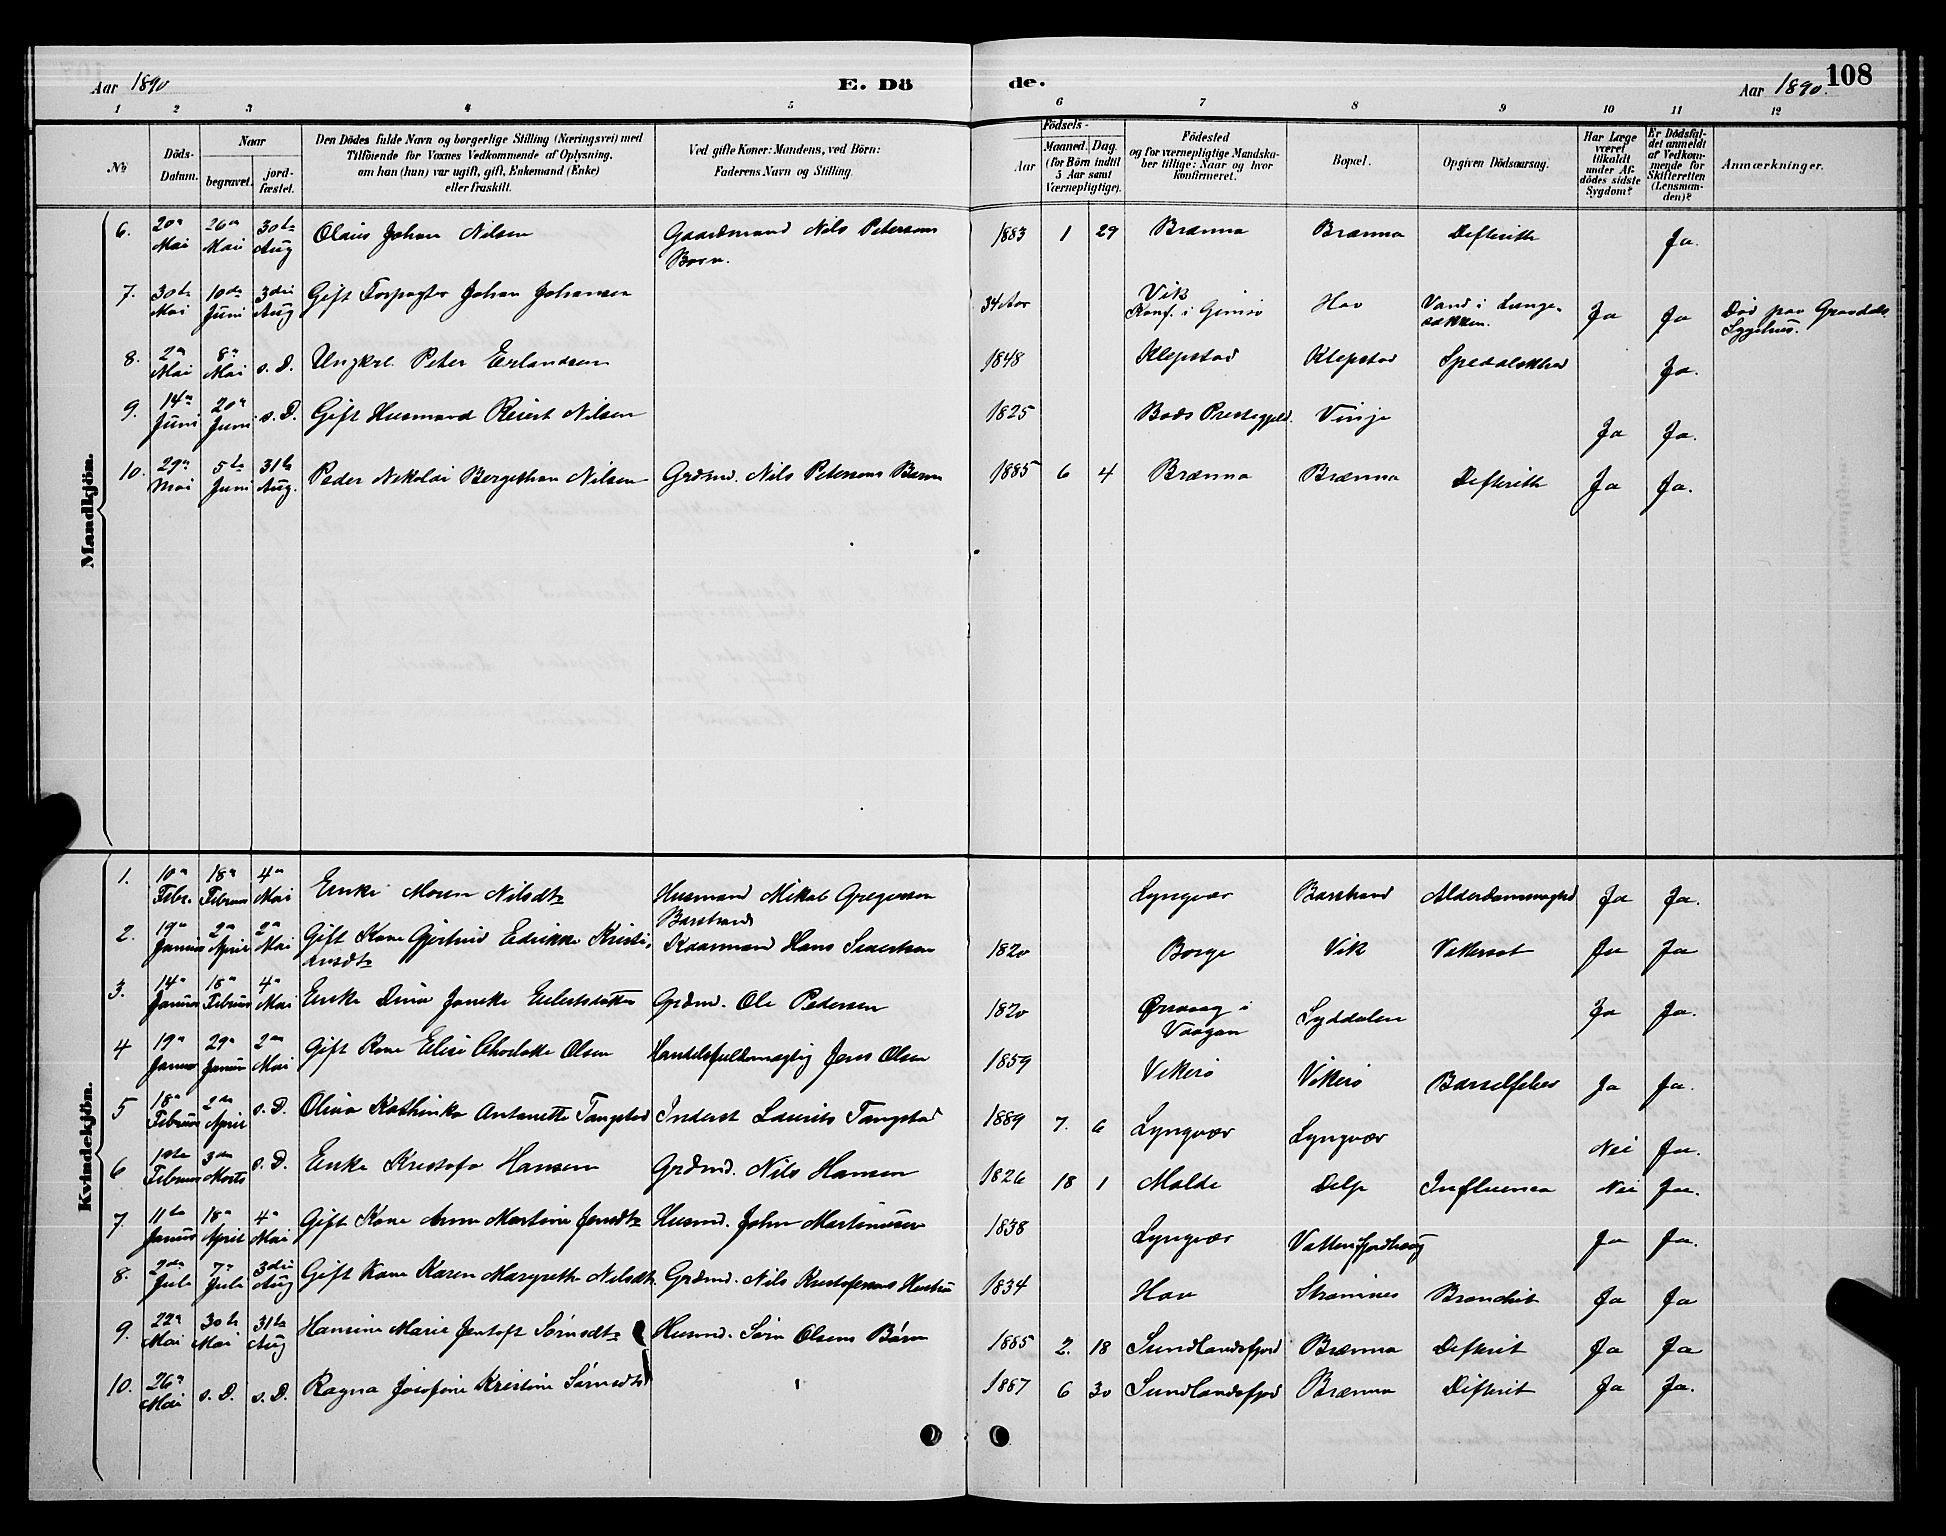 Aar 1890
E. Dö de.
Aar 1890. 108
1 2 3 4 5 6 7 8 9 10 11 12
№
Döds-Datum.
Naar
begravet.
jord-fæstet.
Den Dödes fulde Navn og borgerlige Stilling (Næringsvei) med
Tilföiende for Voxnes Vedkommende af Oplysning,
om han (hun) var ugift, gift, Enkemand (Enke)
eller fraskilt.
Ved gifte Koner: Mandens, ved Börn:
Faderens Navn og Stilling.
Födsels-
Aar
Maaned. Dag.
(for Börn indtil
5 Aar samt
Værnepligtige).
Födested
og for værnepligtige Mandska-
ber tillige: Naar og hvor
konfirmeret.
Bopæl.
Opgiven Dödsaarsag.
Har Læge
været
tilkaldt
under Af-
dödes sidste
Sygdom?
Er Dödsfal-
det anmeldt
af Vedkom-
mende for
Skifteretten
(Lensman-
den)?
Anmærkninger.
Mandkjön.
6. 20de Mai 26de Mai 30te Aug Olaus Johan Nilsen Gaardmand Nils Petersens Barn. 1883 1 29 Brænna Brænna Difterith Ja.
7. 30te Mai 10de Juni 3die Aug Gift Forpagter Johan Johansen 34 Aar Vik Konf. i Gimsø Hov Vand i Lunge-sækken. Ja Ja Død paa Gravdals Sygehus.
8. 2den Mai 8de Mai s. D. Ungkrl. Peter Erlandsen 1848 Klepstad Klepstad Spedalskhed Ja.
9. 14de Juni 20de Juni s. D. Gift Husmand Reiert Nilsen 1825 Bodø Prestegjeld. Vinje Ja Ja.
10. 29de Mai 5te Juni 31te Aug. Peder Nikolai Bergethon Nilsen Grdmd. Nils Petersens Barn 1885 6 4 Brænna Brænna Difterith Ja Ja.
Kvindekjön.
1. 10de Febr. 18de Februar 4de Mai Enke Maren Nilsdtr Husmand Mikal Gregersen Barstrand Lyngvær Barstrand Alderdomssvaghed Ja Ja.
2. 19de Januar 2den April 2den Mai Gift Kone Gjertrud Edrikke Kristiansdtr Kaarmand Hans Sivertsen 1820 Borge Vik Vattersot Ja Ja
3. 14de Januar 18de Februar 4de Mai Enke Dina Janeke Eilertsdatter Grdmd. Ole Pedersen 1820 Ørsvaag i Vaagan Syddalen Ja Ja.
4 19de Januar 29de Januar 2den Mai Gift Kone Elise Charlotte Olsen Handelsfuldmægtig Jens Olsen 1859 Vikerø Vikerø Barselfeber Ja Ja.
5 18de Februar 2den April s. D. Olina Kathinka Antonette Tangstad Inderst Laurits Tangstad 1889 7. 6 Lyngvær Lyngvær Nei Ja.
6 1ste Februar 3die Marts s. D. Enke Kristofa Hansen Grdmd. Nils Hansen 1826 18 1 Molde Delp Influensa Nei Ja.
7. 11te Januar 18de April 4de Mai Gift Kone Anne Martine Jensdtr Husmd. John Martinusen 1838 Lyngvær Vatterfjordhaug Ja Ja.
8. 2den Juli 7de Juli 3die Aug Gift Kone Karen Margrethe Nilsdtr. Grdmd. Nils Kristofersens Hustru 1834 Hov Strømnes Bronchit Ja Ja
9. 22de Mai 30te Mai 31te Aug Hansine Marie Jentoft Sørnsdtr Husmd. Sørn Olsens Børn 1885 2. 18 Sundlandsfjord Brænna Difterit Ja Ja
10. 26de Mai s. D. s. D. Ragna Josefine Kristine Sørnsdtr 1887 6 30 Sundlandsfjord Brænna Difterit Ja Ja.